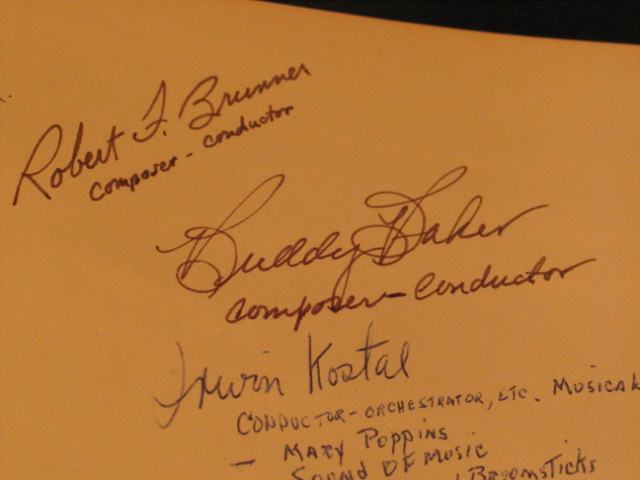 Robert F. Brunner
composer - conductor
Buddy Baker
composer - conductor
Irwin Kostal
CONDUCTOR - ORCHESTRATOR, ETC. MUSICAL
- MARY POPPINS
SOUND OF MUSIC
BROOMSTICKS